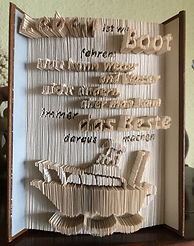 Leben ist wie
Boot
fahren:
man kann Wetter
und Wasser
nicht ändern
aber man kann
immer das Beste
daraus machen